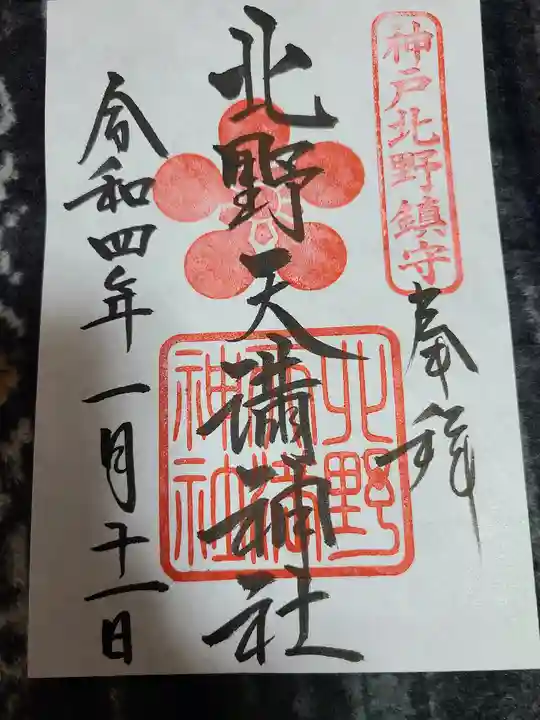 神戸北野鎮守
奉拝
北野天満神社
北野
天満
神社
令和四年一月十一日